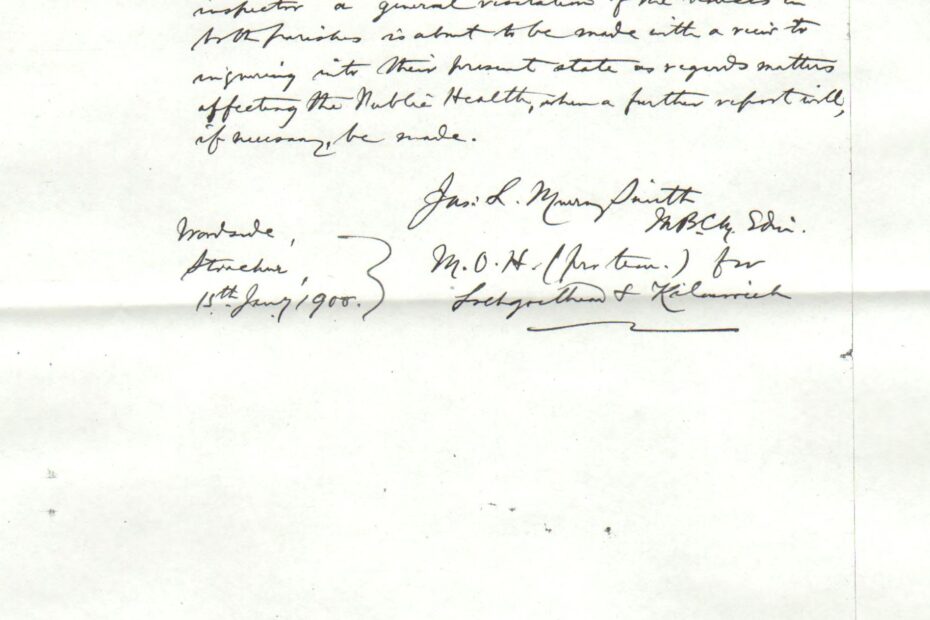 inspector a general visitation of the houses in
both parishes is about to be made with a view to
inquiring into their present state as regards matters
affecting the Public Health, when a further report will,
if necessary, be made.
Jas. L. Murray Smith
M.B.C.M. Edin.
Woodside,
Strachur,
15th Jany 1900.
M.O.H. (pro tem.) for
Lochgoilhead & Kilmorich